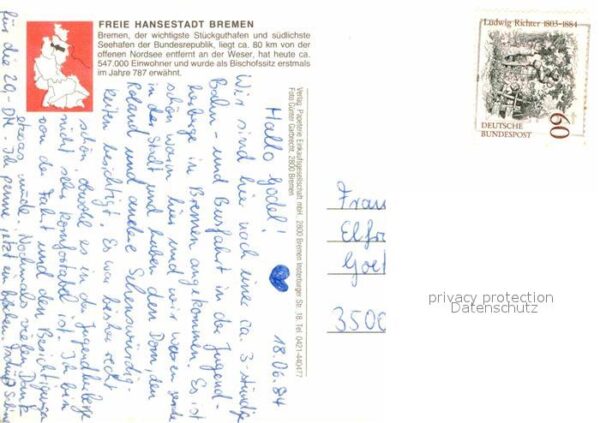 FREIE HANSESTADT BREMEN
Bremen, der wichtigste Stückguthafen und südlichste
Seehafen der Bundesrepublik, liegt ca. 80 km von der
offenen Nordsee entfernt an der Weser, hat heute ca.
547.000 Einwohner und wurde als Bischofssitz erstmals
im Jahre 787 erwähnt.
Verlag: Papeterie Einkaufsgesellschaft mbH, 2800 Bremen Insterburger Str. 18, Tel. 0421-440477
Foto Günter Garbrecht, 2800 Bremen
18.06.84
Hallo Godel!
Wir sind hier nach einer ca. 3-stündige
Bahn- und Busfahrt in der Jugend-
herberge in Bremen angekommen. Es ist
schön warm hier und wir waren
in der Stadt und haben den Dom, den
Roland und andere Sehenswürdig-
keiten besichtigt. Es war bisher recht
schön, obwohl es in der Jugendherberge
nicht sehr komfortabel ist. Ich bin
von der Fahrt und den Besichtigungen
etwas müde. Nochmals vielen Dank
für die 20,-DM. Ich penne jetzt ein
Ludwig Richter 1803-1884
DEUTSCHE
BUNDESPOST
60
Frau
Elfr
Goet
3500
privacy protection
Datenschutz